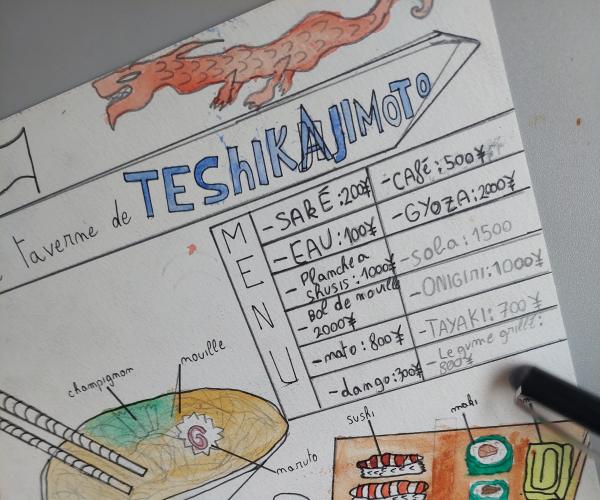 taverne de TEShIKAJIMOTO
MENU
-SAKÉ:200¥
-EAU:100¥
-Planche a
shusis:1000¥
-Bol de nouille
2000¥
-mato:800¥
-dango:300¥
-CAfé:500¥
-GYOZA:2000¥
-soba:1500
-ONIGIRI:1000¥
-TAYAKI:700¥
-Legume grillé:
800¥
champignon
nouille
naruto
sushi
maki